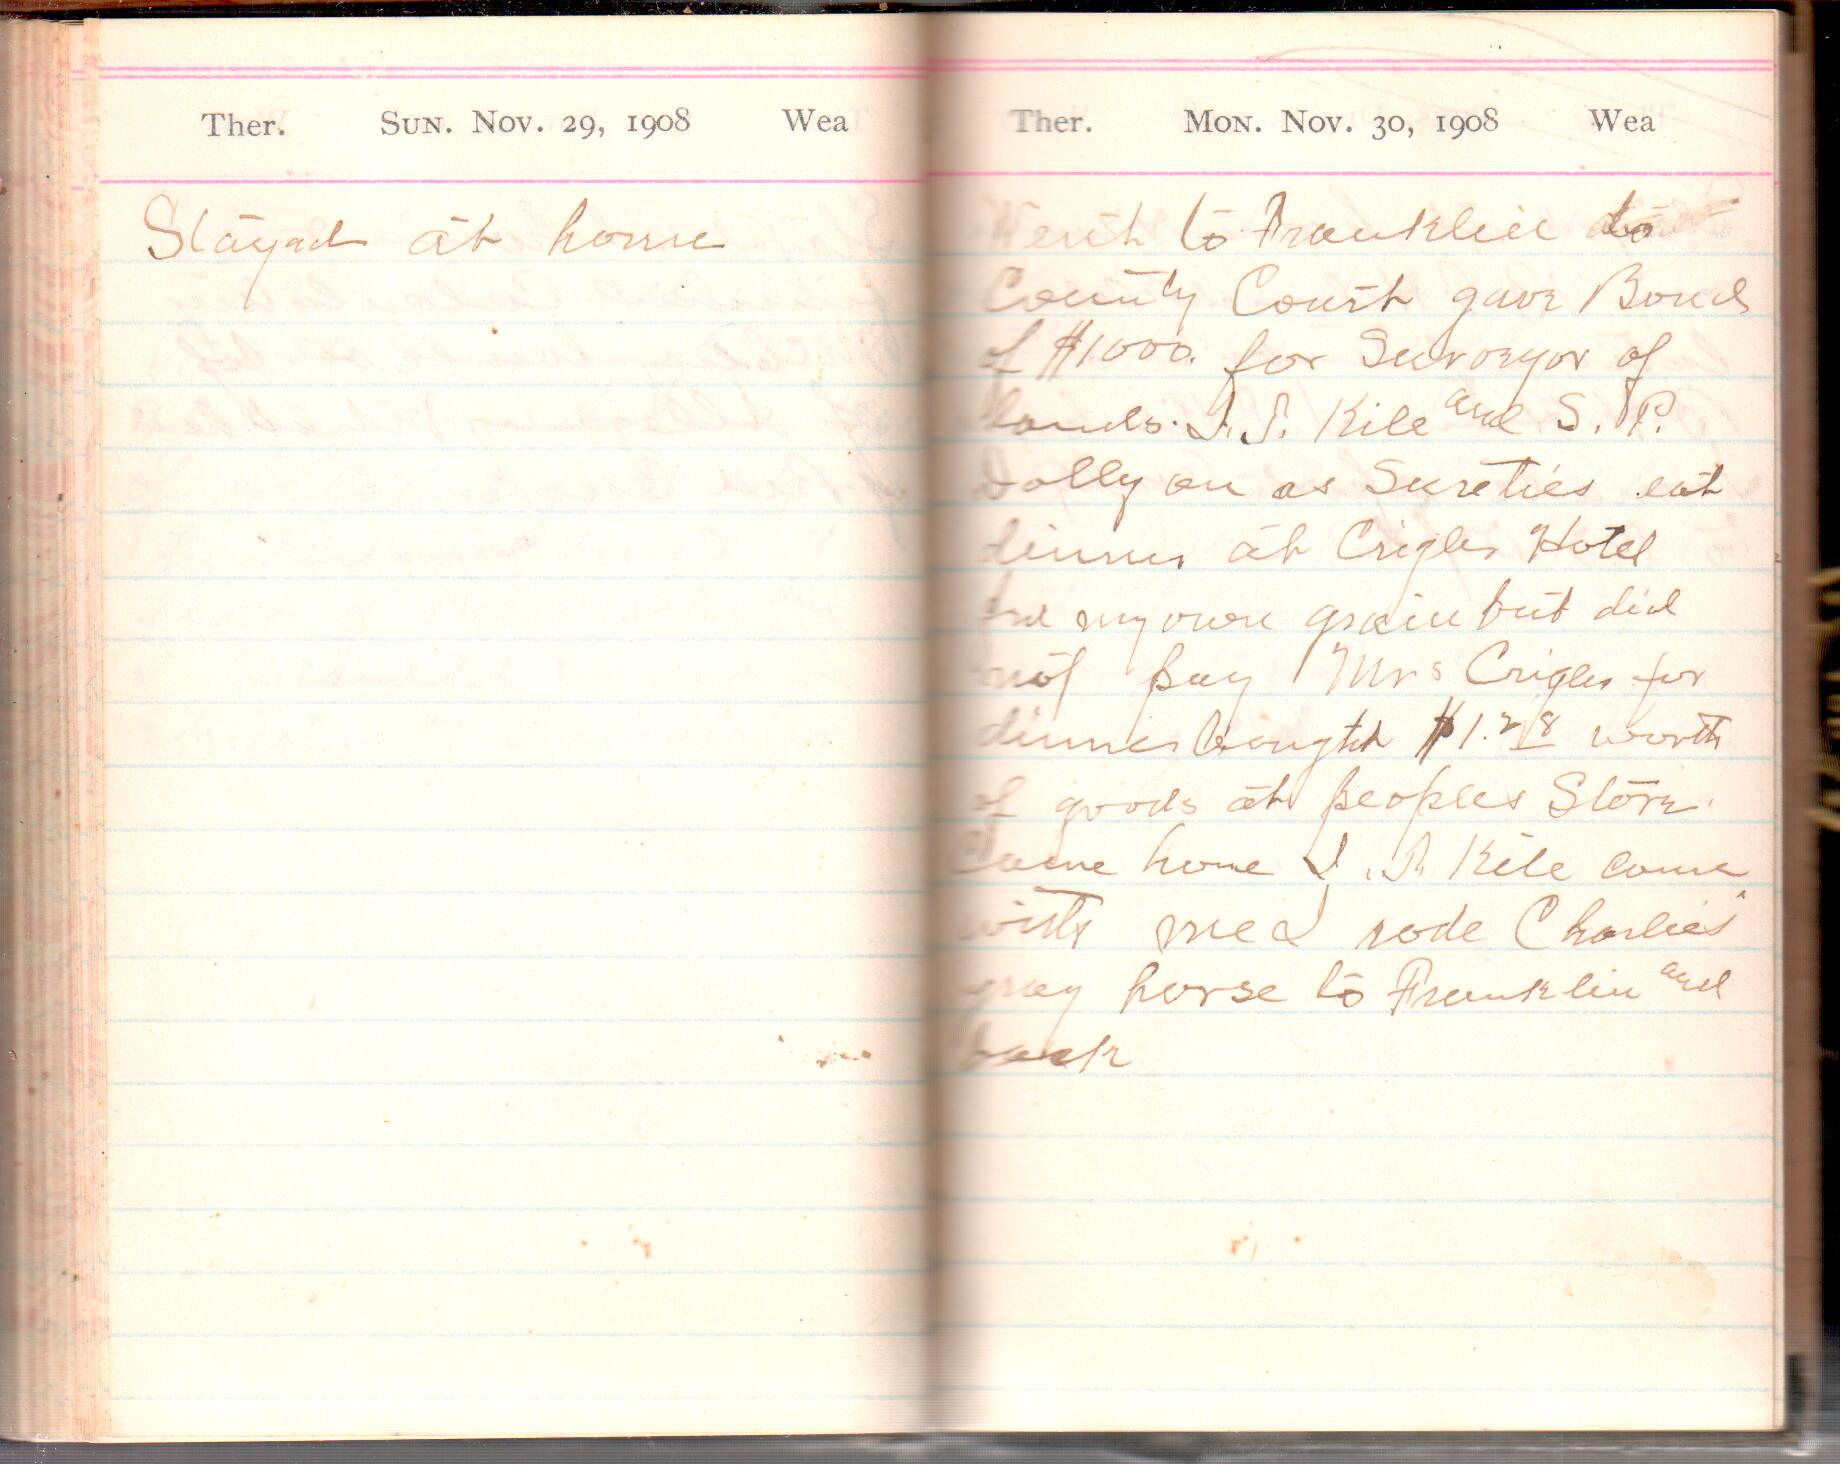 Ther. Sun. Nov. 29, 1908 Wea
Stayed at home
Ther. Mon. Nov. 30, 1908 Wea
Went to Franklin to
County Court gave Bond
of $1000. for Surveyor of
lands. I. S. Kile and S. P.
Dolly on as Sureties eat
dinner at Crigler Hotel
fed my own grain but did
not pay Mrs Crigler for
dinner bought $1.28 worth
of goods at peoples Store.
Came home I. S. Kile came
with me I rode Charlie's
gray horse to Franklin and
back